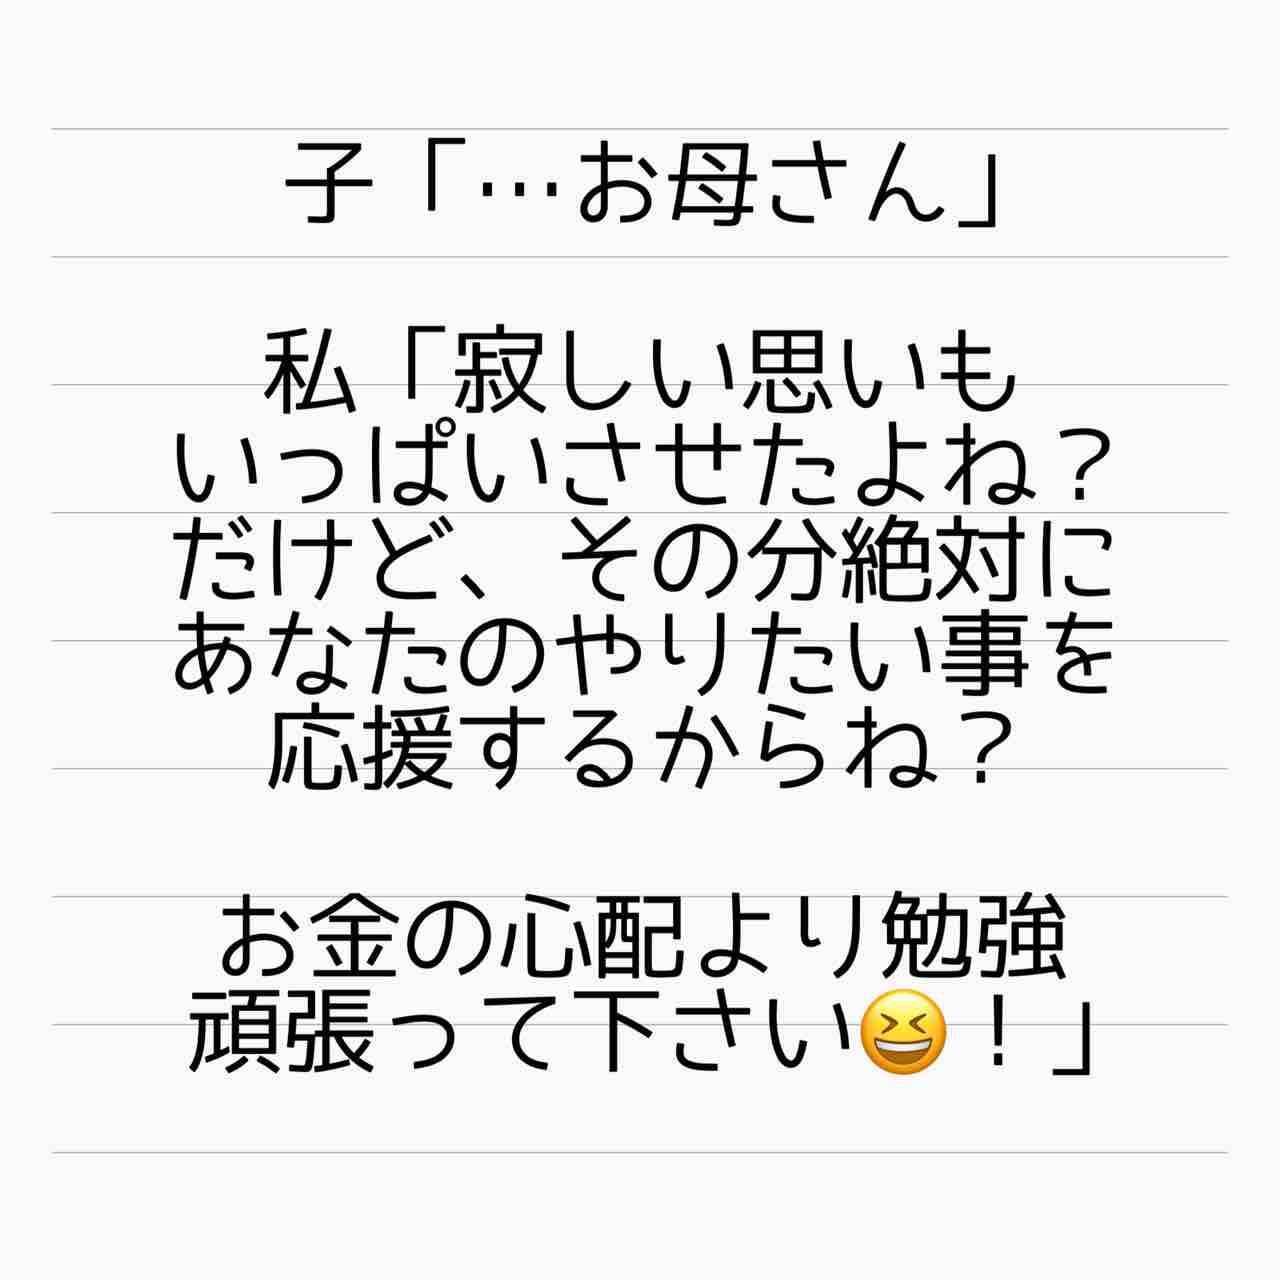 子「…お母さん」
私「寂しい思いも
いっぱいさせたよね？
だけど、その分絶対に
あなたのやりたい事を
応援するからね？
お金の心配より勉強
頑張って下さい😆！」